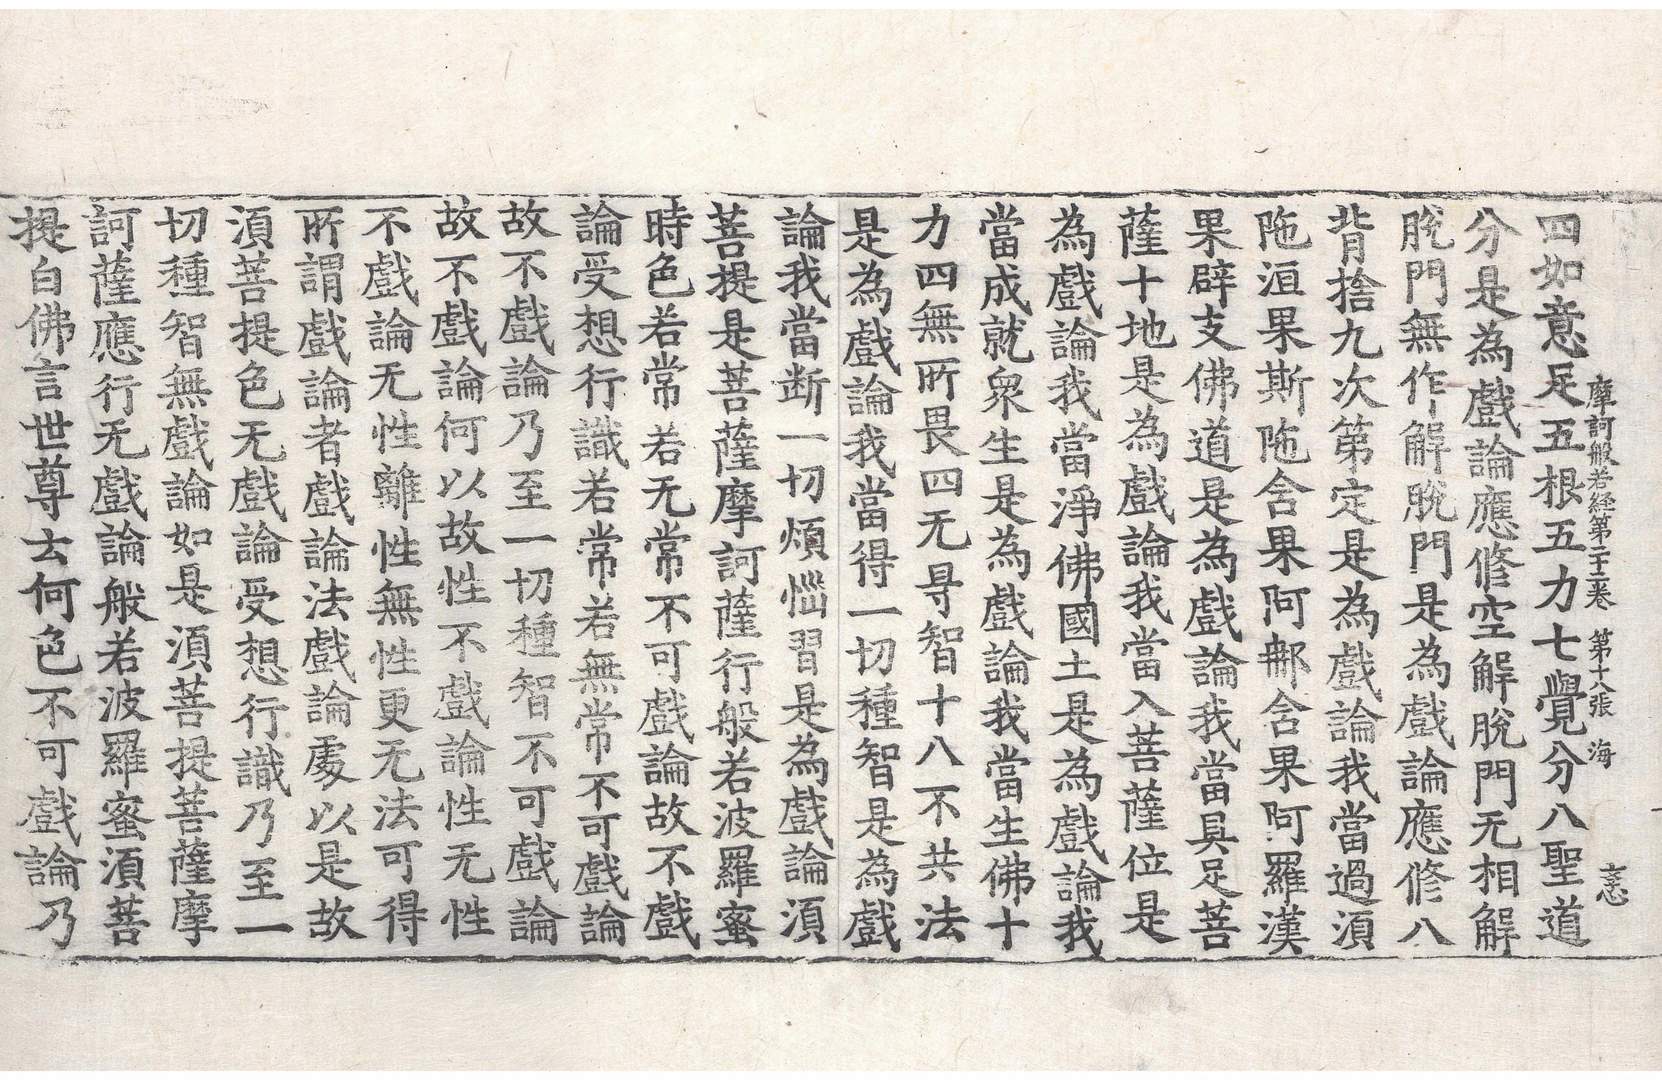 摩訶般若経第二十二卷　第十八張　海
四如意足五根五力七覺分八聖道
分是為戲論應修空解脫門无相解
脫門無作解脫門是為戲論應修八
背捨九次第定是為戲論我當過須
陁洹果斯陁含果阿那含果阿羅漢
果辟支佛道是為戲論我當具足菩
薩十地是為戲論我當入菩薩位是
為戲論我當淨佛國土是為戲論我
當成就眾生是為戲論我當生佛十
力四無所畏四无㝵智十八不共法
是為戲論我當得一切種智是為戲
論我當断一切煩惱習是為戲論須
菩提是菩薩摩訶薩行般若波羅蜜
時色若常若无常不可戲論故不戲
論受想行識若常若無常不可戲論
故不戲論乃至一切種智不可戲論
故不戲論何以故性不戲論性无性
不戲論无性離性無性更无法可得
所謂戲論者戲論法戲論處以是故
須菩提色无戲論受想行識乃至一
切種智無戲論如是須菩提菩薩摩
訶薩應行无戲論般若波羅蜜須菩
提白佛言世尊云何色不可戲論乃